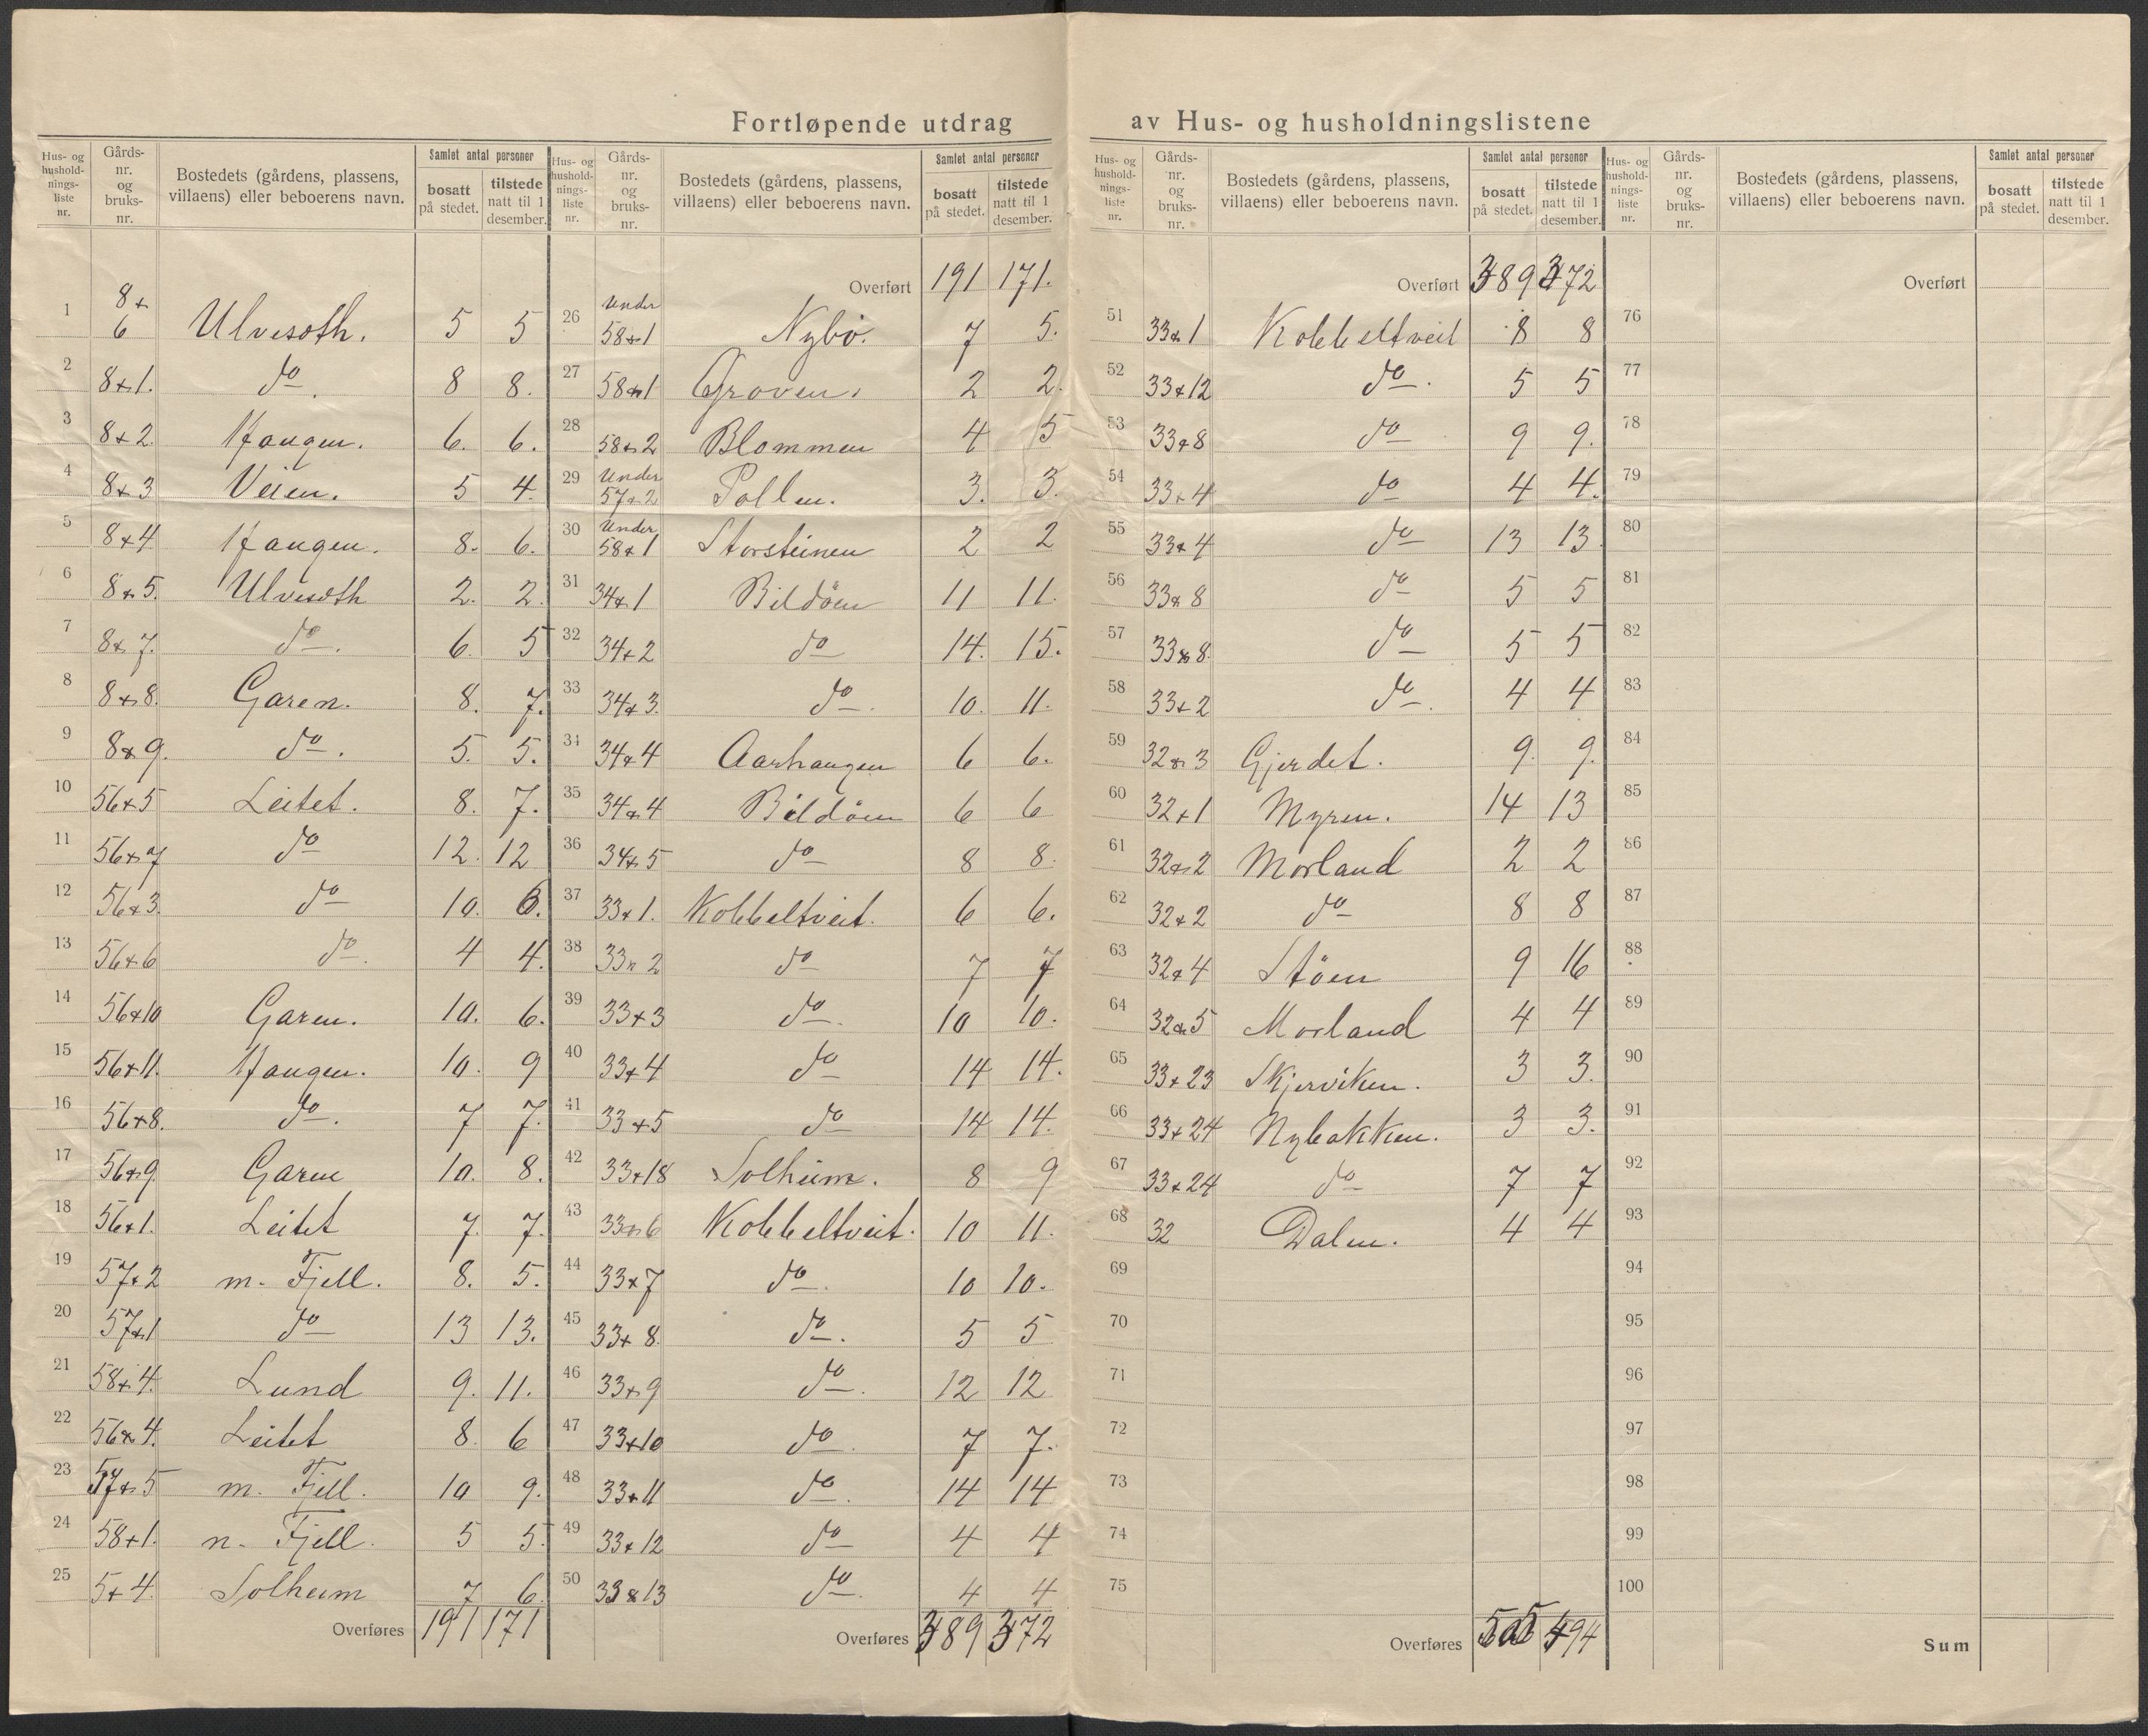 Fortløpende utdrag av Hus- og husholdningslistene
Hus- og hushold- nings- liste nr. | Gårds- nr. og bruks- nr. | Bostedets (gårdens, plassens, villaens) eller beboerens navn. | Samlet antal personer | bosatt på stedet. | tilstede natt til 1 desember.
1 8+6 Ulvesoth. 5 5
2 8+1. do. 8 8.
3 8+2 Haugen. 6. 6.
4 8+3 Veien. 5 4.
5 8+4 Haugen. 8. 6.
6 8+5. Ulvesoth 2. 2.
7 8+7. do. 6. 5
8 8+8. Garen. 8. 7.
9 8+9. do. 5. 5.
10 56+5 Leitet. 8. 7.
11 56+7 do 12. 12
12 56+3. do 10. 6.
13 56+6 do. 4 4.
14 56+10 Garen. 10. 6.
15 56+11. Haugen. 10. 9
16 56+8. do. 7 7.
17 56+9. Garen 10. 8.
18 56+1. Leitet 7. 7.
19 57+2 m. Fjell. 8. 5.
20 57+1 do 13 13.
21 58+4. Lund 9. 11.
22 56+4. Leitet 8. 6
23 57+5 m. Fjell. 10 9.
24 58+1. n. Fjell. 5 5.
25 5+4. Solheim 7 6.
Overføres 191 171
Hus- og hushold- nings- liste nr. | Gårds- nr. og bruks- nr. | Bostedets (gårdens, plassens, villaens) eller beboerens navn. | Samlet antal personer | bosatt på stedet. | tilstede natt til 1 desember.
Overført 191 171.
26 Under 58+1 Nybø. 7 5.
27 58+1 Groven. 2 2.
28 58+2 Blommen 4 5
29 Under 57+2 Pollen. 3. 3.
30 Under 58+1 Storsteinen 2 2
31 34+1 Bildöen 11 11.
32 34+2 do 14. 15.
33 34+3. do. 10. 11.
34 34+4 Aarhaugen 6 6.
35 34+4 Bildöen 6 6
36 34+5 do 8 8.
37 33+1. Kobbeltveit. 6 6.
38 33+2 do 7 7
39 33+3 do. 10 10.
40 33+4 do 14 14.
41 33+5 do 14 14.
42 33+18 Solheim. 8 9
43 33+6 Kobbeltveit. 10 11.
44 33+7 do. 10 10.
45 33+8. do. 5 5
46 33+9 do. 12 12
47 33+10 do. 7 7.
48 33+11 do. 14 14
49 33+12 do 4 4
50 33+13 do. 4 4
Overføres 389 372
Hus- og hushold- nings- liste nr. | Gårds- nr. og bruks- nr. | Bostedets (gårdens, plassens, villaens) eller beboerens navn. | Samlet antal personer | bosatt på stedet. | tilstede natt til 1 desember.
Overført 389 372
51 33+1 Kobbeltveit 8 8
52 33+12 do. 5 5
53 33+8 do 9 9.
54 33+4 do 4 4.
55 33+4 do 13 13
56 33+8 do 5 5
57 33+8. do 5 5
58 33+2 do. 4 4
59 32+3 Gjerdet. 9. 9.
60 32+1 Myren. 14 13
61 32+2 Morland 2 2
62 32+2 do 8 8
63 32+4 Stöen 9 16
64 32+5 Morland 4 4
65 33+23 Skjerviken. 3 3.
66 33+24 Nybakken. 3 3.
67 33+24 do 7 7
68 32 Dalen. 4 4
69
70
71
72
73
74
75
Overføres 505 494
Hus- og hushold- nings- liste nr. | Gårds- nr. og bruks- nr. | Bostedets (gårdens, plassens, villaens) eller beboerens navn. | Samlet antal personer | bosatt på stedet. | tilstede natt til 1 desember.
Overført
76
77
78
79
80
81
82
83
84
85
86
87
88
89
90
91
92
93
94
95
96
97
98
99
100
Sum